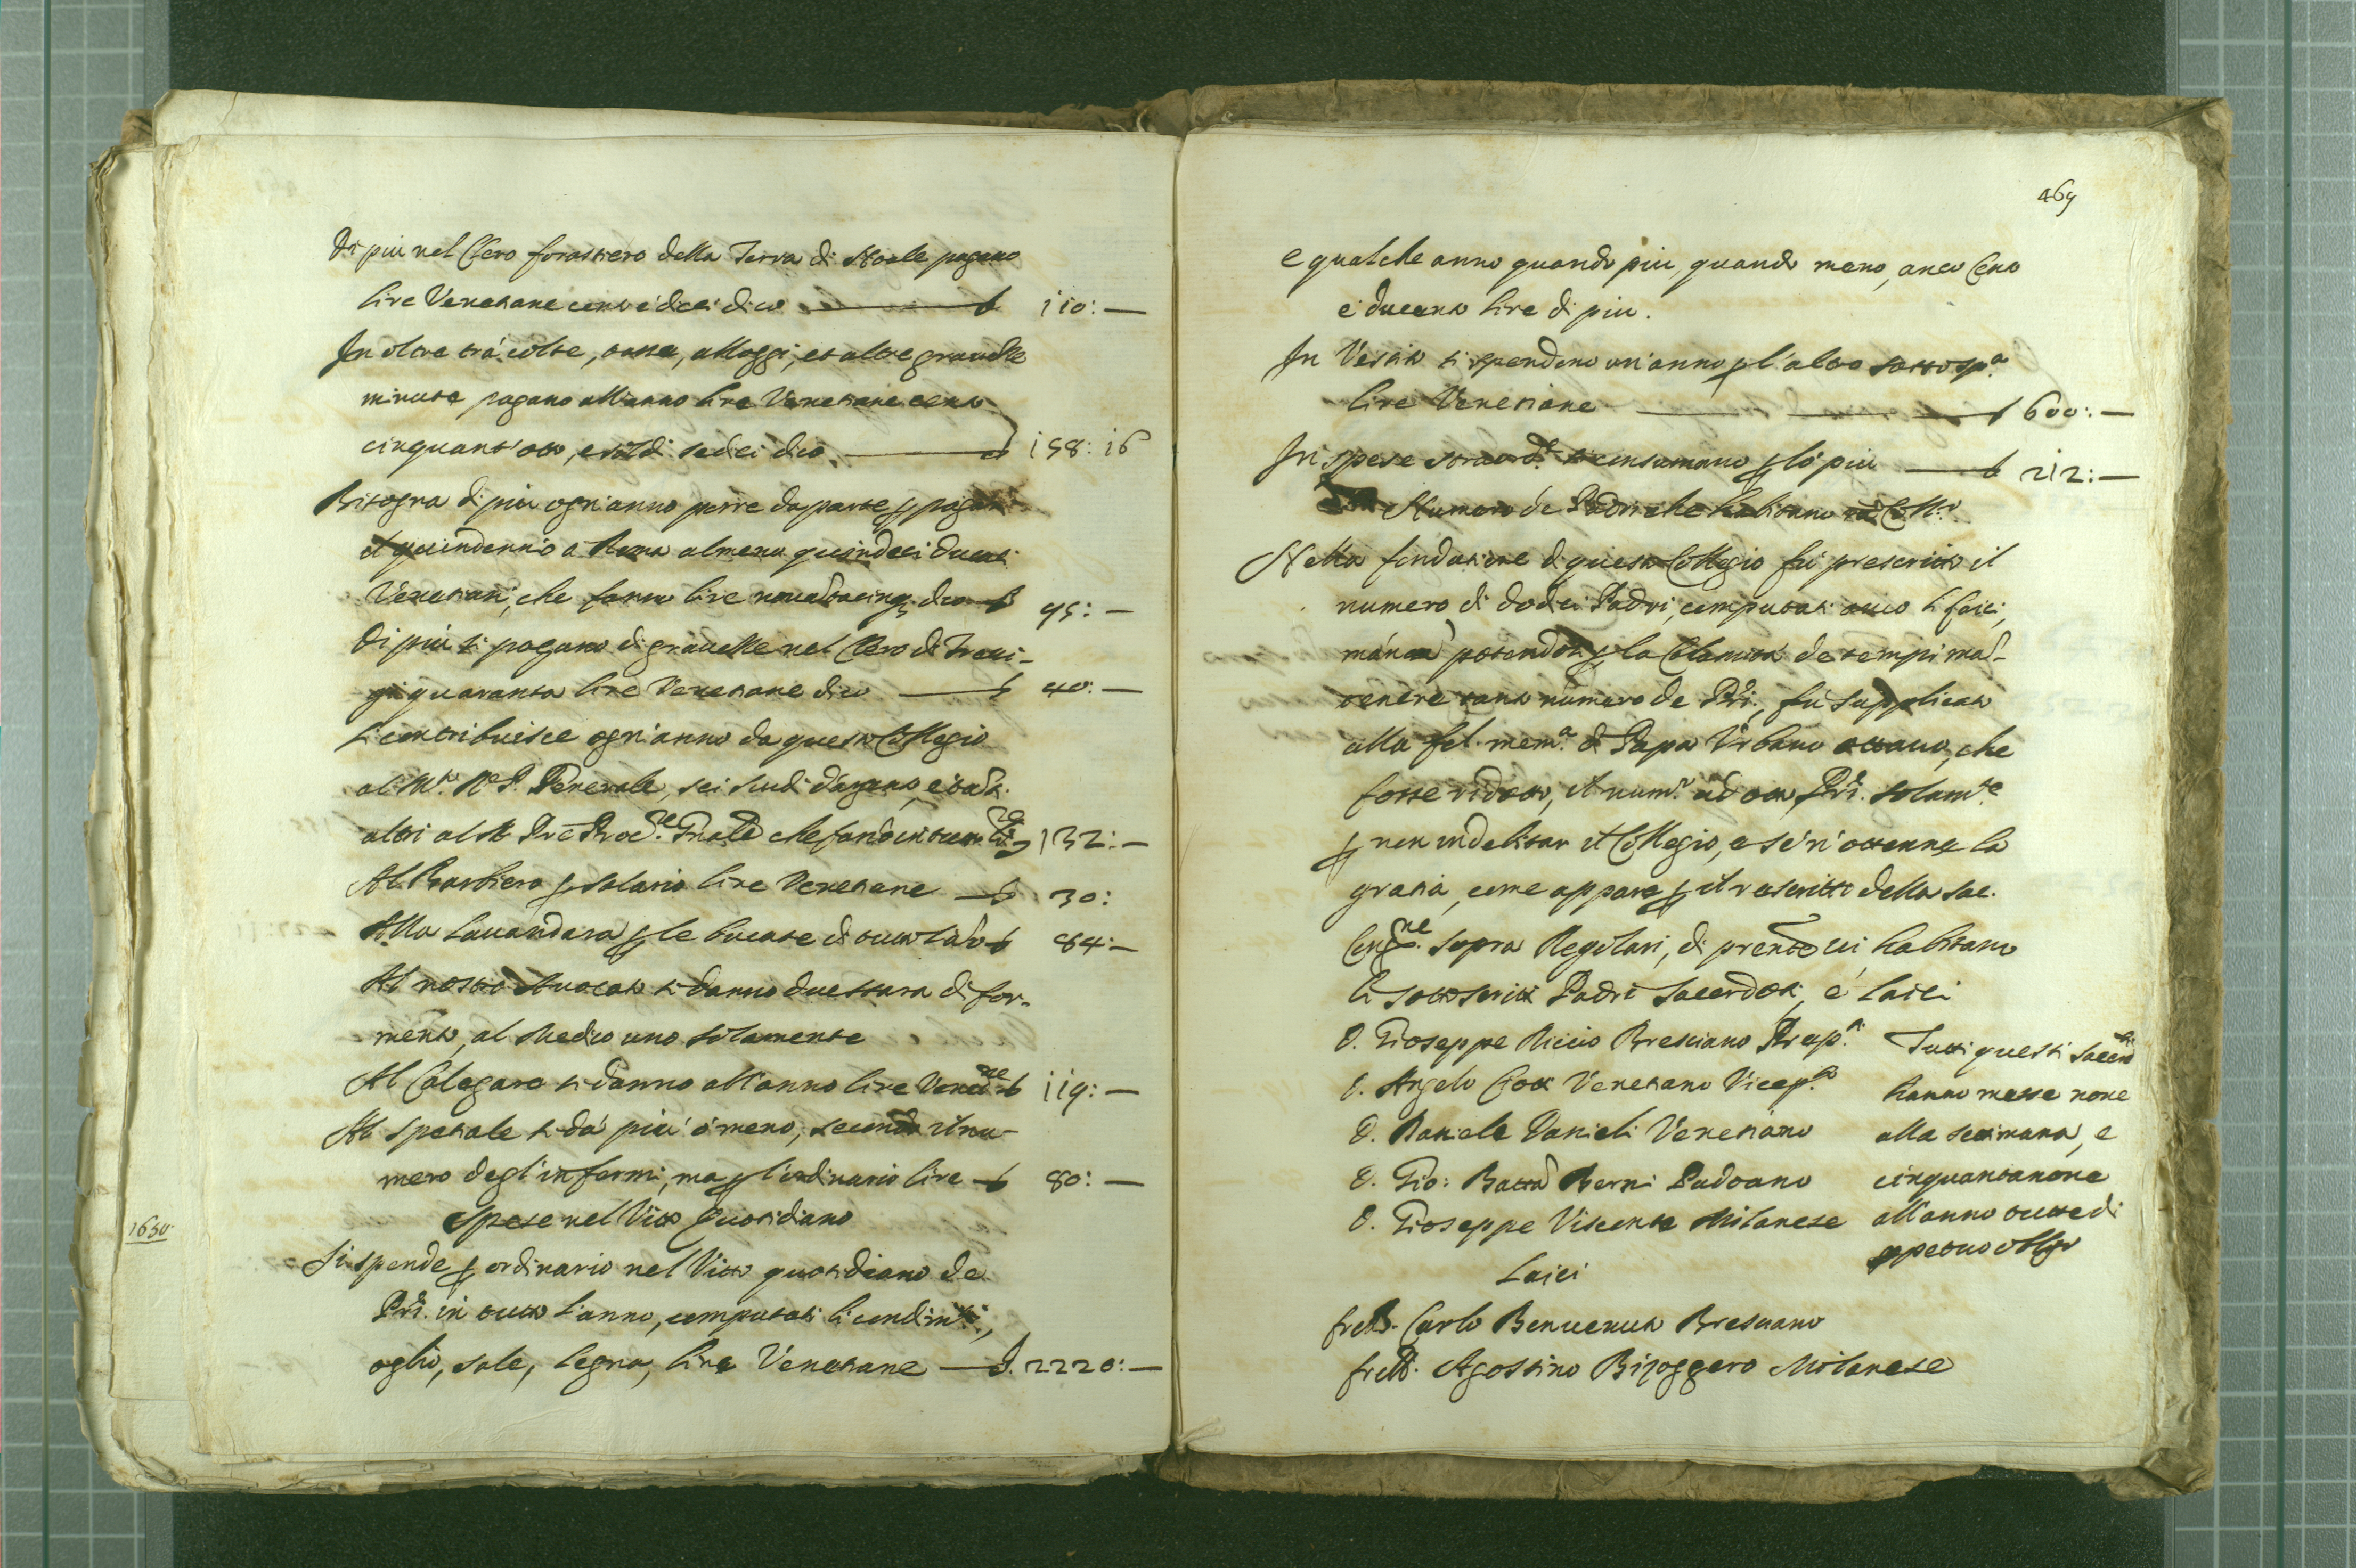 Di piu nel Clero forastiero della Terra di Noale pagano
lire Venetiane cento e dieci dico £ 110: —
In oltre trà colte, tasse, alloggi, et altre grauezze
minute pagano all'anno lire Venetiane cento
cinquant'otto, e soldi sedeci dico 158: 16
Bisogna di più ogn'anno porre da parte p pagar
il quindennio a Roma almeno quindeci ducati
Venetiani, che fanno lire nouantacinq; dico £ 95: —
Di più si pagano di grauezze nel Clero di Treui-
gi quaranta lire Venetiane dico £ 40: —
Si contribuisce ogn'anno da questo Collegio
al M.to R.P. Generale, sei scudi d'argento, e tanti
altri al M. Pre Proc.re Gnale che fanno in tutto 132: —
Al Barbiero p salario lire Venetiane £ 30:
Alla Lauandara p le bucate di tutto l'año £ 84: —
Al nostro Auocato si danno due stara di for-
mento, al Medico uno solamente
Al Calegaro si danno all'anno lire Venet.ne £ 119: —
Al spetiale si dà più ò meno, secondo il nu-
mero degl'infermi, ma p l'ordinario lire £ 80: —
Spese nel Vitto Quotidiano
1650
Si spende p ordinario nel Vitto quotidiano de
Pri. in tutto l'anno, computati li condim.ti,
oglio, sale, legna, lire Venetiane £. 2220: —
469
e qualche anno quando piu, quando meno, anco Cento
e ducento lire di piu.
In Vestito si spendono un'anno p l'altro sottosp.a
lire Venetiane £ 600: —
In spese straord.e si consumano p lo piu £ 212: —
Numero de Padri che habitano nel Coll.o
Nella fondatione di questo Collegio fù prescritto il
numero di dodeci Padri, computati anco li laici,
mà non potendosi p la Calamità de tempi man-
tenere tanto numero de Pri, fù supplicato
alla fel. mem.a di Papa Vrbano ottauo, che
fosse ridotto, il num.o ad otto Pri. solam.te
p non indebitar il Collegio, e se n'ottenne la
gratia, come appare p il rescritto della Sac.
Cong.ne sopra Regolari, di prente ui habitano
li sottoscritti Padri Sacerdoti, e Laici
D. Gioseppe Riccio Bresciano Prep.to
D. Angelo Ciotti Venetiano Vicep.to
D. Daniele Danieli Venetiano
D. Gio: Batta Berni Padoano
D. Gioseppe Visconte Milanese
Tutti questi Sacerd.ti
hanno messe noue
alla settimana, e
cinquantanoue
all'anno tutte di
ppetuo obligo
Laici
frello. Carlo Benuenuto Bresciano
frello. Agostino Bizoggero Milanese